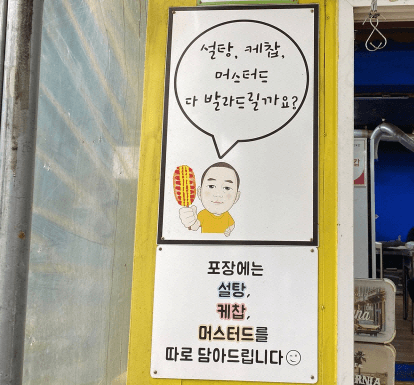 설탕, 케찹,
머스터드
다 발라드릴까요?
포장에는
설탕,
케찹,
머스터드를
따로 담아드립니다☺